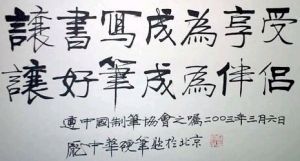 讓書寫成為享受
讓好筆成為伴侶
遵中國制筆協會之囑二〇〇三年三月六日
龐中華硬筆題於北京